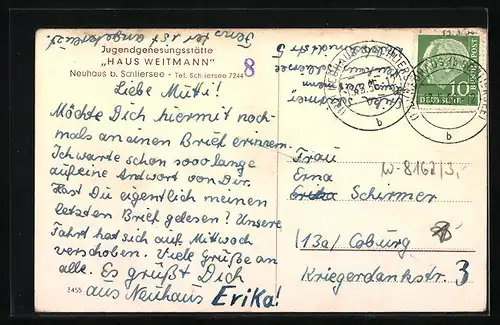 Fenster ist angekreuzt.
Jugendgenesungsstätte
„HAUS WEITMANN”
Neuhaus b. Schliersee - Tel. Schliersee 7244
8
Liebe Mutti!
Möchte Dich hiermit noch-
mals an einen Brief erinnern.
Ich warte schon sooo lange
auf eine Antwort von Dir.
Hast Du eigentlich meinen
letzten Brief gelesen? Unsere
Fahrt hat sich auf Mittwoch
verschoben. Viele Grüße an
alle. Es grüßt Dich
aus Neuhaus Erika!
3455
Erika Schirmer
b
b
DEUTSCHE BUNDESPOST
10
W-8167/3,-
Frau
Erna
Erika Schirmer
(13a) Coburg
Kriegerdankstr. 3